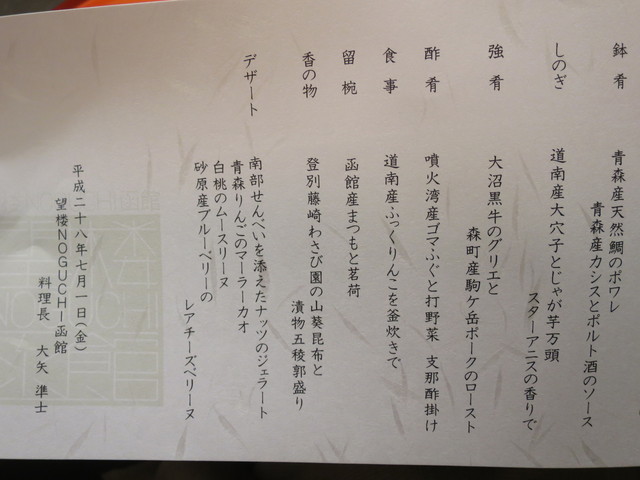 鉢肴
青森産天然鯛のポワレ
青森産カシスとポルト酒のソース
しのぎ
道南産大穴子とじゃが芋万頭
スターアニスの香りで
強肴
大沼黒牛のグリエと
森町産駒ケ岳ポークのロースト
酢肴
噴火湾産ゴマふぐと打野菜 支那酢掛け
食事
道南産ふっくりんこを釜炊きで
留椀
函館産まつもと茗荷
香の物
登別藤崎わさび園の山葵昆布と
漬物五稜郭盛り
デザート
南部せんべいを添えたナッツのジェラート
青森りんごのマーラーカオ
白桃のムースリーヌ
砂原産ブルーベリーの
レアチーズベリーヌ
平成二十八年七月一日(金)
望楼NOGUCHI函館
料理長 大矢 準士